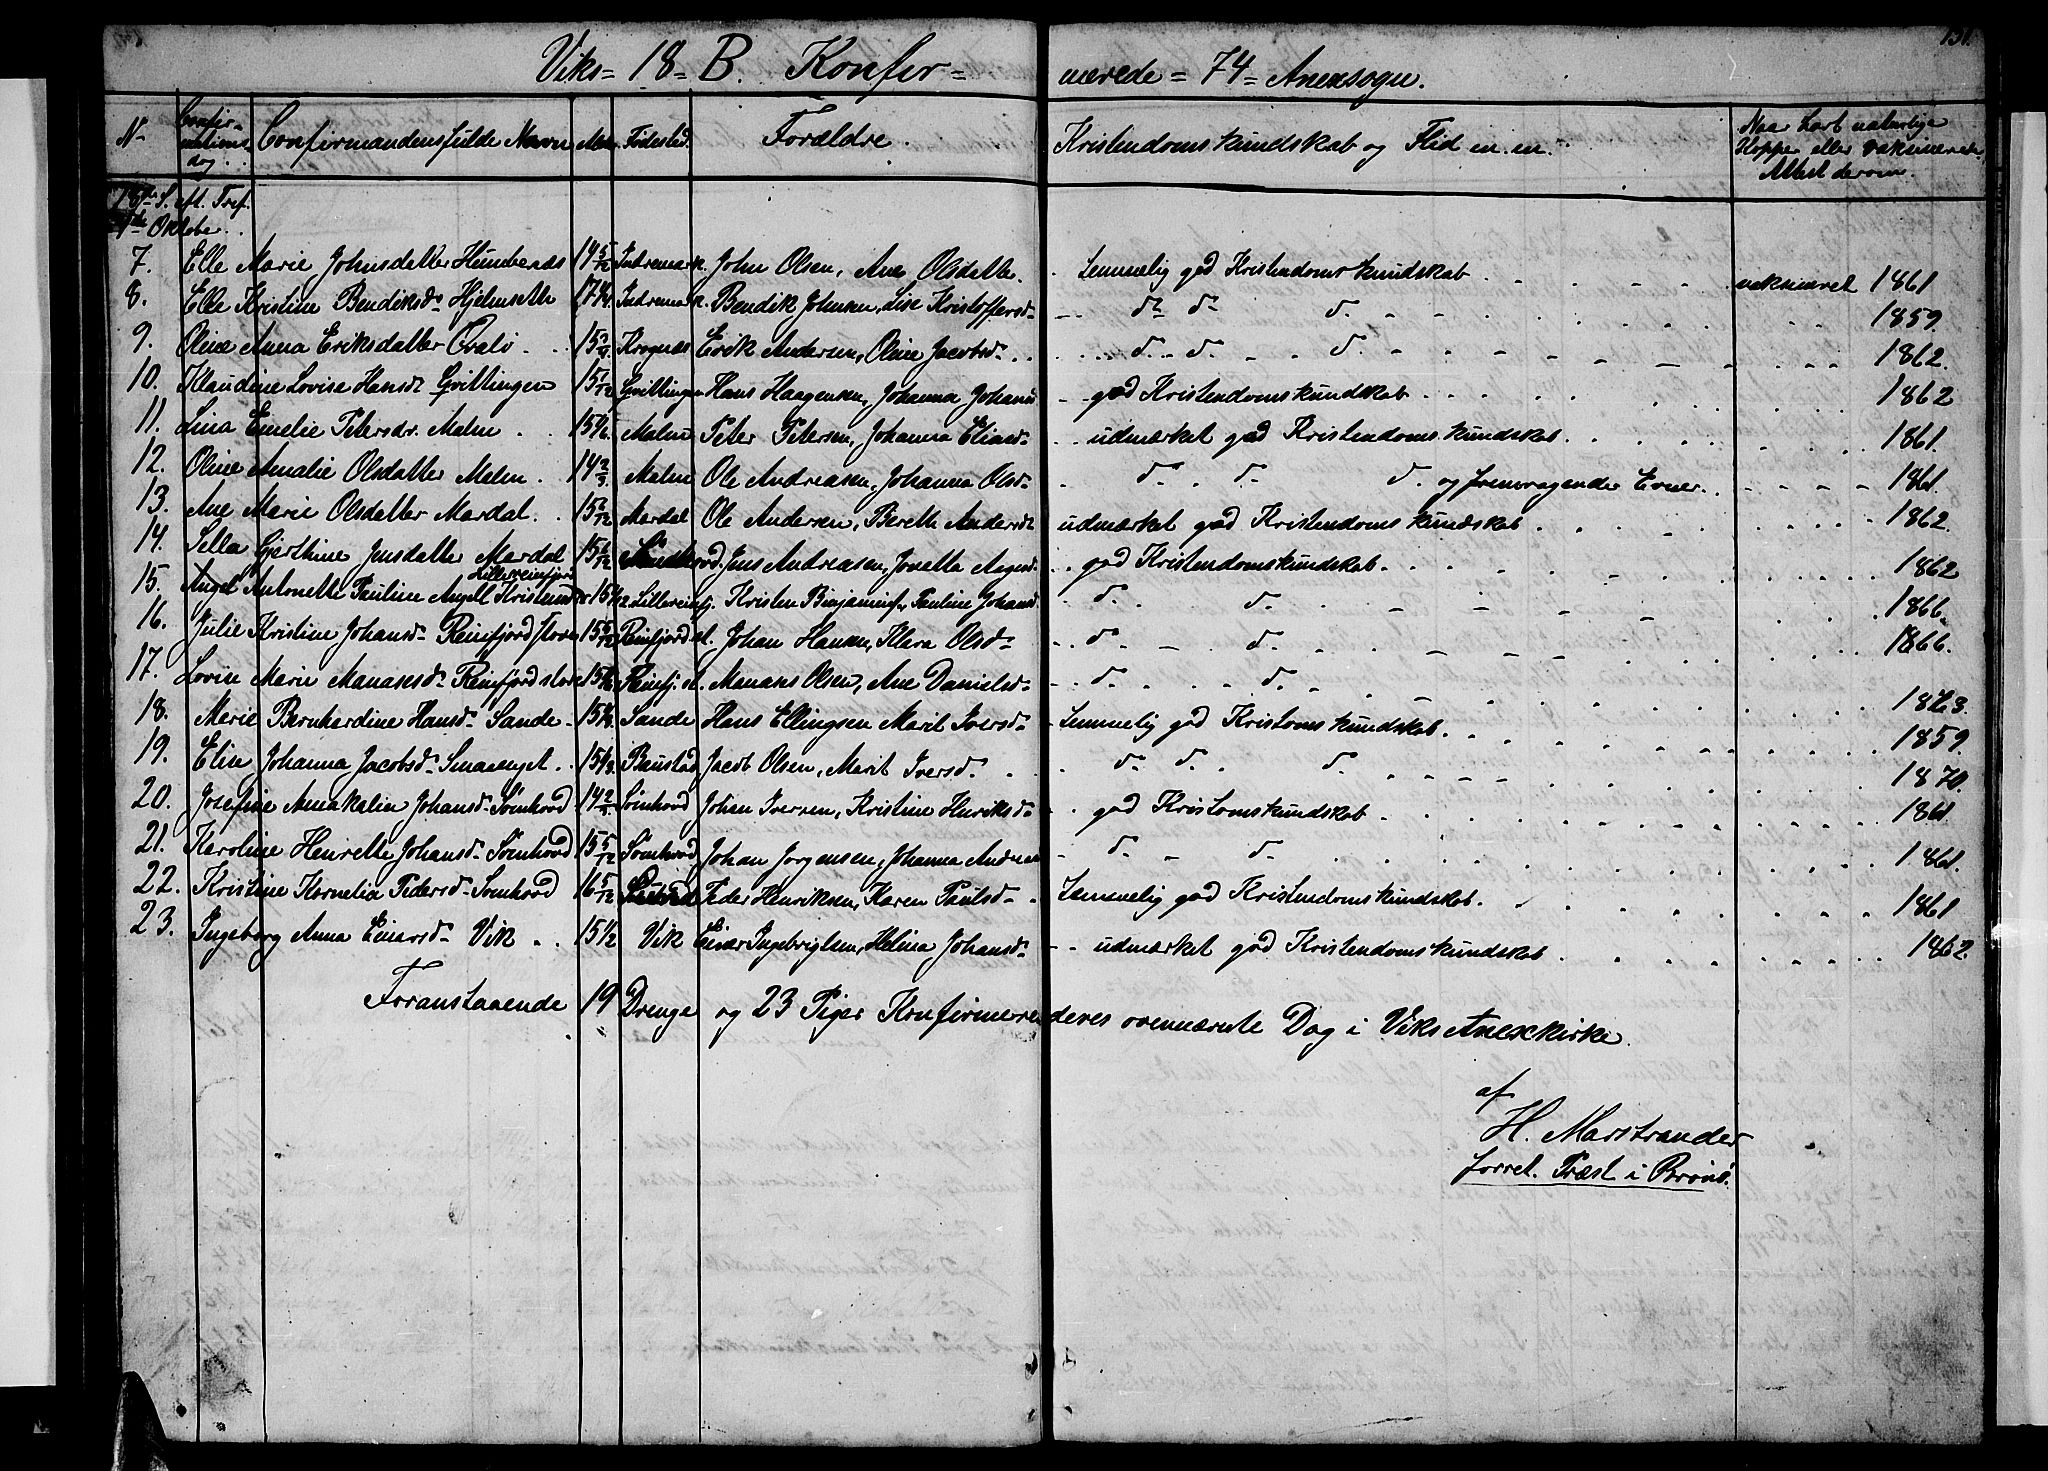 Viks = 18 = B. Konfir= mærede = 74 = Anexsogn.
131.
No Confirmations dag. Confirmandens fulde Navn Alder Fødested. Forældre. Kristendomskundskab og Flid m. m. Naar havt naturlige Kopper eller vaksineret. Attest derom.
18de S. eft. Tref.
4de Oktober.
7. Elle Marie Johnsdatter Humbernæs 14 5/12 Indremark. John Olsen, Ane Olsdatter. Temmelig god Kristendomskundskab vaksineret 1861
8. Elle Kristine Bendiksdr Hjelmseth 17 1/4 Indremark. Bendik Johnsen, Lise Kristoffersdr do do do. 1859.
9. Oline Anna Eriksdatter Qvalø 15 Krognæs Erik Andersen, Oline Jacobsdr do. do. do. 1862.
10. Klaudine Lovise Hansdr Gvittingen 15 1/12 Gvittingen Hans Haagensen, Johanna Johans god Kristendomskundskab 1862
11. Lina Emelie Petersdr. Malm 15 1/6 Malm Peter Petersen, Johanna Eliasdr udmærket god Kristendomskundskab. 1861.
12. Oline Amalie Olsdatter Malm. 14 2/3 Malm Ole Andreasen, Johanna Olsdr do. do. do. og fremragende Evner. 1861.
13. Ane Marie Olsdatter Mardal. 15 Mardal Ole Andersen, Bereth Andersdr udmærket god Kristendomskundskab 1862.
14. Sella Gjerthine Jensdatter Mardal 15 Jens Andreasen, Jonetta Aagesd. god Kristendomskundskab. 1862
Lillereinfjord
15. Angel Antonette Pauline Angell Kristensdr 15 1/12 Lillereinfj. Kristen Binjaminsen, Pauline Johansd. do. do. 1866.
16. Julie Kristine Johansdr Reinfjord store 15 5/12 Reinfjord st. Johan Hansen, Klara Olsdr do. do. 1866.
17. Lovise Marie Manasesdr Reinfjord store 15 Reinfj. st. Manases Olsen, Ane Danielsdr do. do. 1873.
18. Marie Bernhardine Hansdr Sande. 15 Sande Hans Ellingsen Marit Iversdr Temmelig god Kristomskundskab. 1859.
19. Elise Johanna Jacobsdr Smaavaget. 15 1/3 Baustad Jacob Olsen, Marit Iversdr. do. do. do. 1870.
20. Josefine Annakalia Johansdr Sømhovd 14 2/3 Sømhovd Johan Iversen, Kristine Henriksdr god Kristomskundskab 1861
21. Karoline Henrette Johansdr Sømhovd 15 5/12 Sømhovd Johan Jørgensen, Johanna Andreas do. do. 1861.
22. Kristine Kornelia Pedersdr Sømhovd 16 5/12 Peder Henriksen, Karen Paulsdr Temmelig god Kristendomskundskab. 1861
23. Ingeborg Anna Einarsdr Vik 15 1/2 Vik Einar Ingebrigtsen, Helina Johansdr udmærket god Kristendomskundskab 1862.
Foranstaaende 19 Drenge og 23 Piger Konfirmeredes ovennævnte Dag i Viks Anexkirke.
af
H. Marstrander
forret. Præst i Brønø.